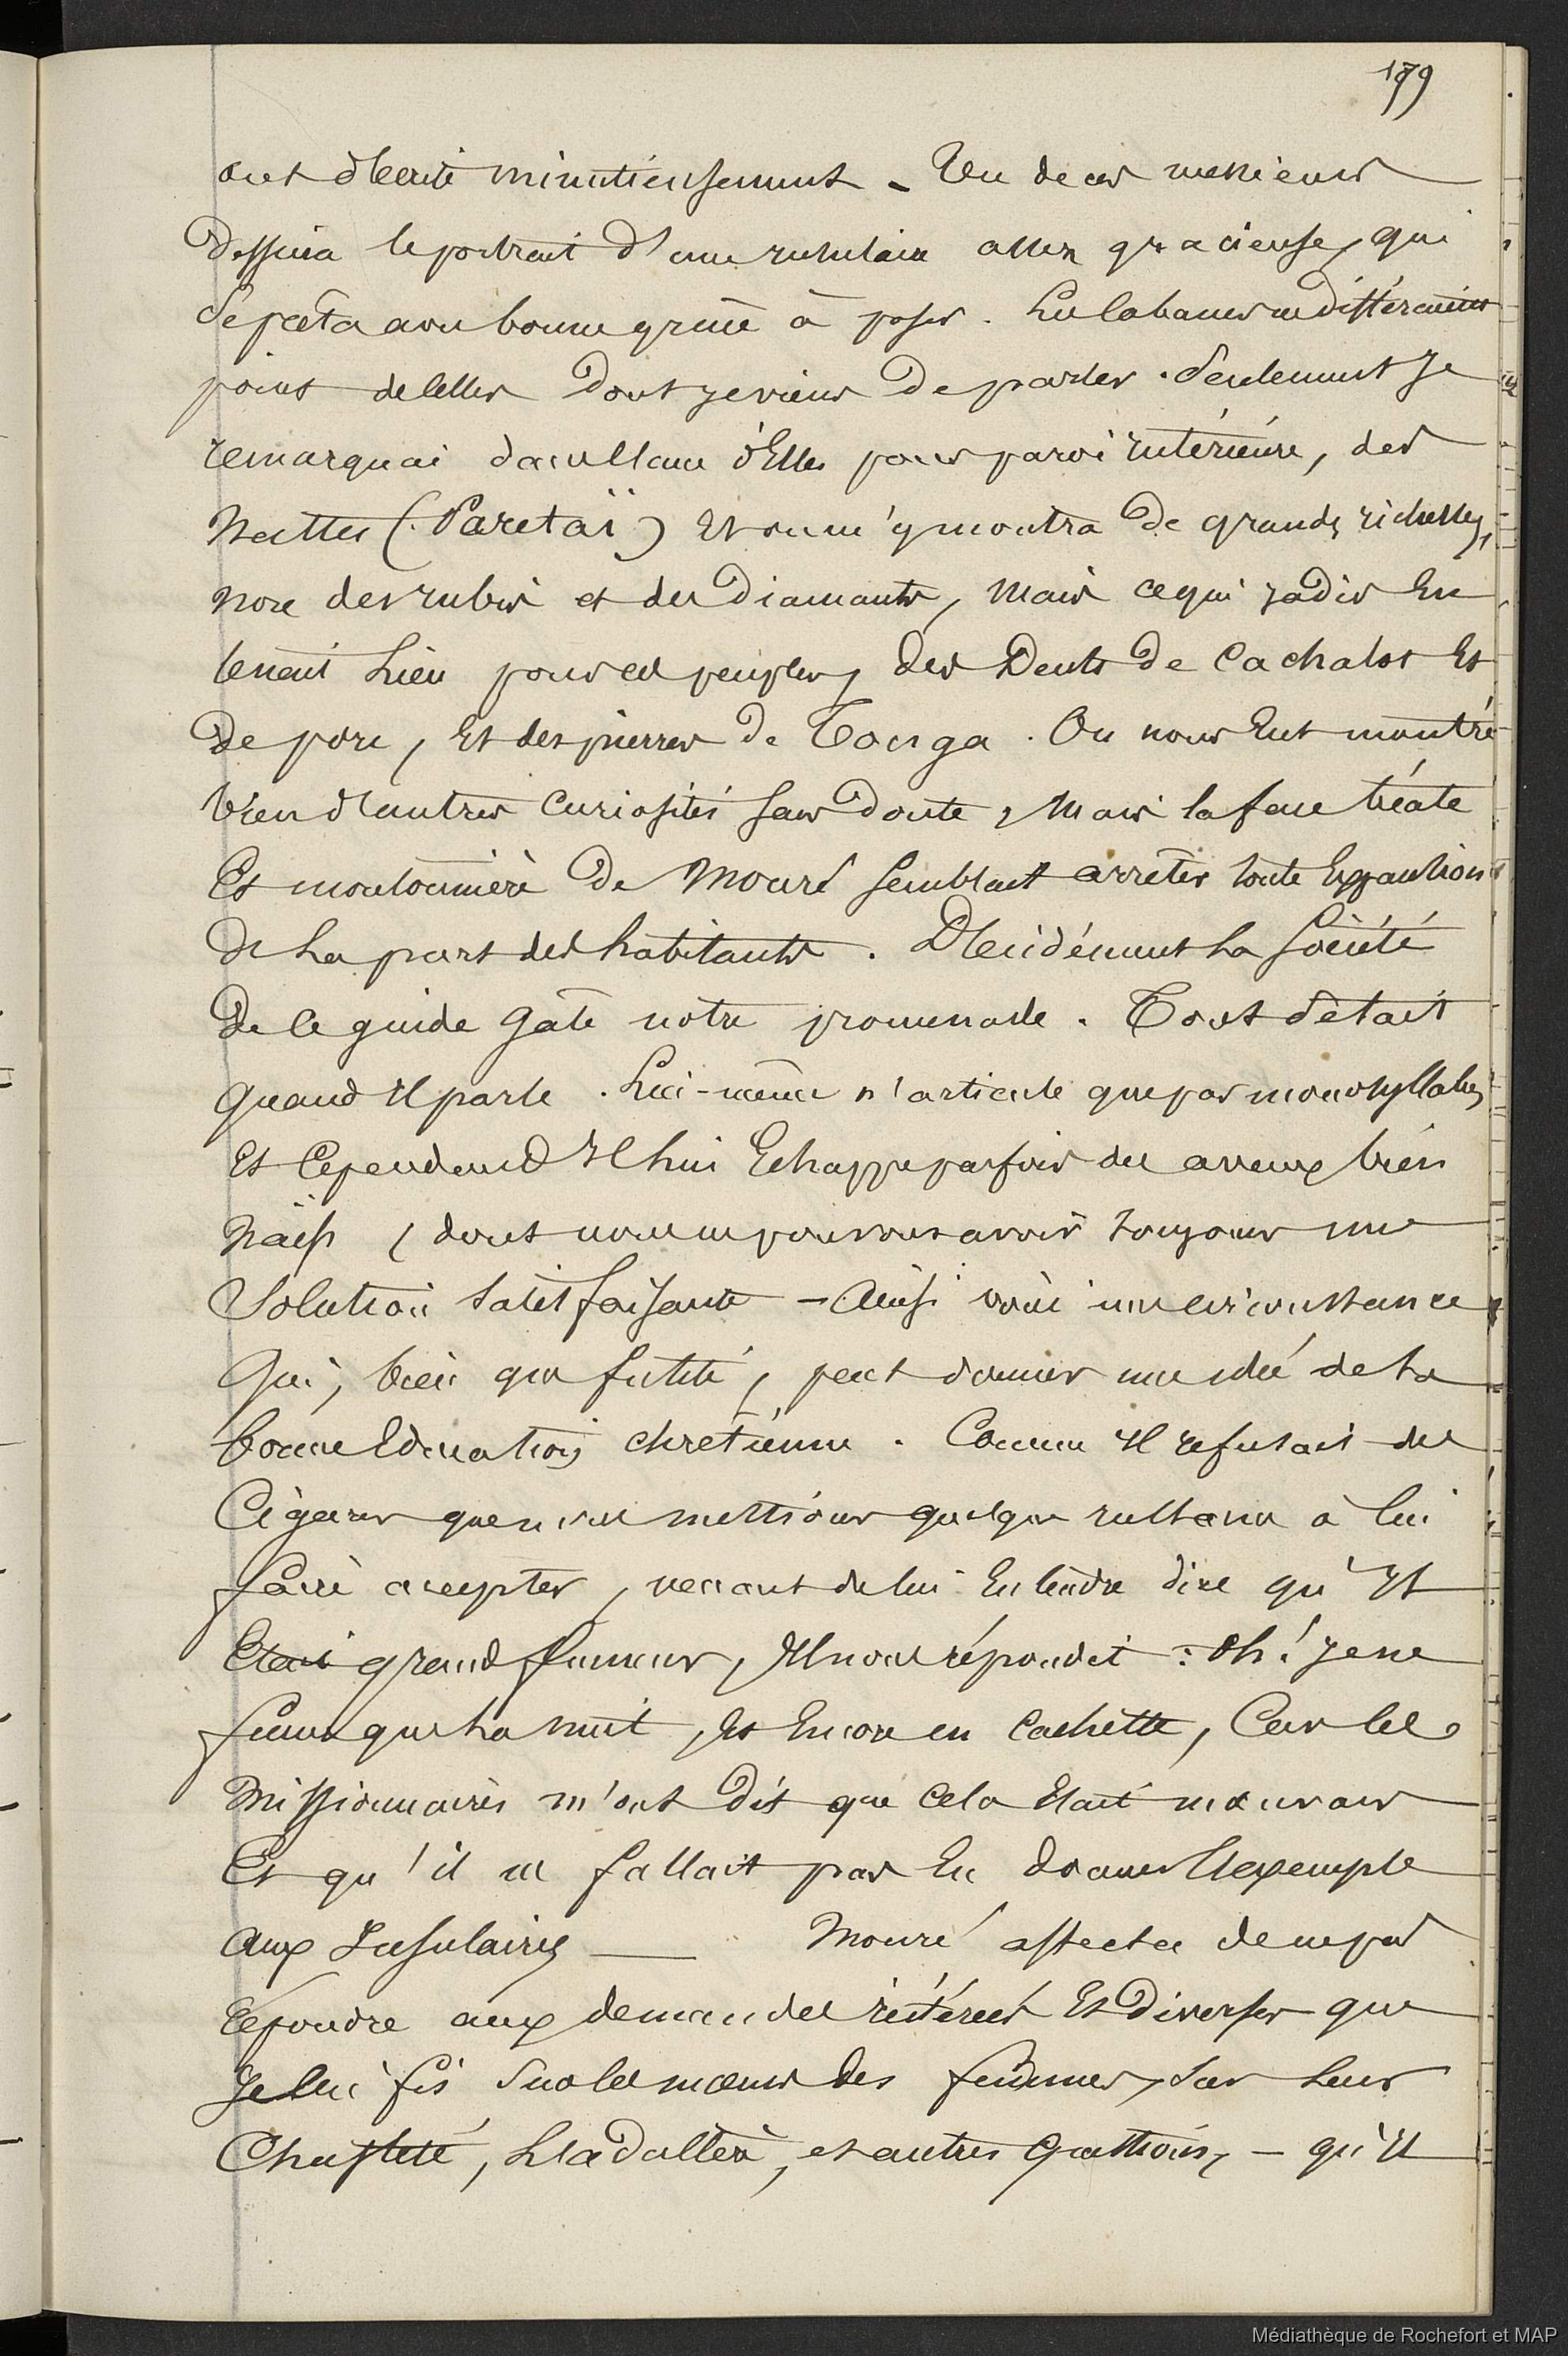 179
ont décrité minutieusement – Un de ces messieurs
dessina le portrait d'une insulaire assez gracieuse, qui
se prêta avec bonne grâce à poser. Les cabanes ne différaient
point de celles dont je viens de parler. Seulement je
remarquai dans l'une d'Elles pour paroi intérieure, des
Nattes (Paretaï) Et on m'y montra de grandes richesses,
non des rubis et des Diamants, mais ce qui jadis En
tenait Lieu pour ces peuples, des Dents de Cachalot Et
de porc, Et des pierres de Tonga. On nous Eut montré
bien d'autres Curiosités sans Doute, Mais la face béate
Et moutonnière de Mouré semblait arrêter toute Expansion
de La part des habitants. Décidément La Société
De ce guide gâte notre promenade. Tout se tait
quand Il parle. Lui-même n'articule que par monosyllabes
Et Cependand Il lui Echappe parfois des aveux bien
naïfs, dont nous ne pouvons avoir toujours une
Solution satisfaisante – Ainsi voici une circonstance
Qui, bien que futile, peut donner une idée de La
bonne Education chretienne. Comme Il refusait des
Cigares que nous mettions quelque instance à lui
faire accepter, venant de lui Entendre dire qu'Il
Etait grand fumeur, Il nous répondit : Oh! je ne
fume que La nuit, Et Encore en Cachette, Car les
Missionnaires m'ont Dit que Cela Etait mauvais
Et qu'il ne fallait pas En donner L'exemple
aux Insulaires — Mouré affecta de ne pas
répondre aux demandes réitérées Et Diverses que
Je lui fis sur les mœurs des femmes, sur Leur
Chasteté, L'adultère, et autres questions, – qu'Il
Médiathèque de Rochefort et MAP